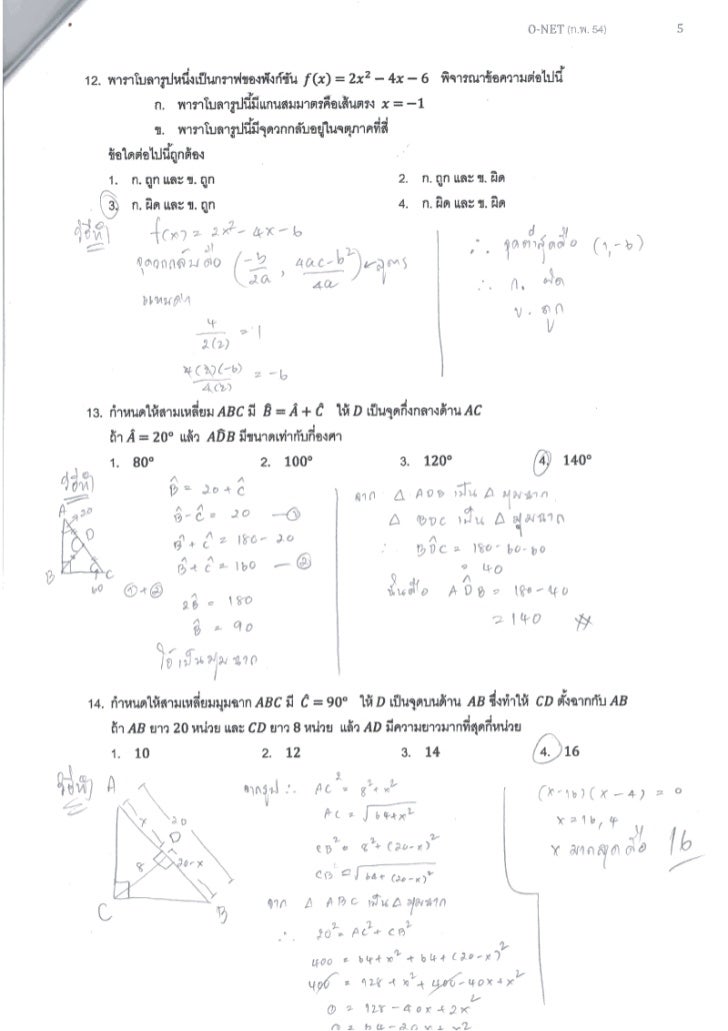 O-NET (ก.พ. 54) 5
12. พาราโบลารูปหนึ่งเป็นกราฟของฟังก์ชัน f(x) = 2x² − 4x − 6 พิจารณาข้อความต่อไปนี้
ก. พาราโบลารูปนี้มีแกนสมมาตรคือเส้นตรง x = −1
ข. พาราโบลารูปนี้มีจุดวกกลับอยู่ในจตุภาคที่สี่
ข้อใดต่อไปนี้ถูกต้อง
1. ก. ถูก และ ข. ถูก 2. ก. ถูก และ ข. ผิด
3. ก. ผิด และ ข. ถูก 4. ก. ผิด และ ข. ผิด
วิธีทำ f(x) = 2x² − 4x − 6
จุดวกกลับคือ (−b/2a , 4ac−b²/4a) ← สูตร
แทนค่า
4/2(2) = 1
4(2)(−6)/4(2) = −6
∴ จุดต่ำสุดคือ (1,−6)
∴ ก. ผิด
ข. ถูก
13. กำหนดให้สามเหลี่ยม ABC มี B̂ = Â + Ĉ ให้ D เป็นจุดกึ่งกลางด้าน AC
ถ้า Â = 20° แล้ว AD̂B มีขนาดเท่ากับกี่องศา
1. 80° 2. 100° 3. 120° 4. 140°
วิธีทำ B̂ = 20 + Ĉ
B̂ − Ĉ = 20 — ①
B̂ + Ĉ = 180 − 20
B̂ + Ĉ = 160 — ②
①+② 2B̂ = 180
B̂ = 90
A 20 D B C
จาก △ ADB เป็น △ มุมฉาก
△ BDC เป็น △ มุมฉาก
∴ BD̂C = 180−60−60
= 40
นั่นคือ AD̂B = 180−40
= 140
14. กำหนดให้สามเหลี่ยมมุมฉาก ABC มี Ĉ = 90° ให้ D เป็นจุดบนด้าน AB ซึ่งทำให้ CD ตั้งฉากกับ AB
ถ้า AB ยาว 20 หน่วย และ CD ยาว 8 หน่วย แล้ว AD มีความยาวมากที่สุดกี่หน่วย
1. 10 2. 12 3. 14 4. 16
วิธีทำ A x 20 D 8 20−x C B
จากรูป ∴ AC² = 8²+x²
AC = √64+x²
CB² = 8²+(20−x)²
CB = √64+(20−x)²
จาก △ ABC เป็น △ มุมฉาก
∴ 20² = AC²+CB²
400 = 64+x²+64+(20−x)²
400 = 128+x²+400−40x+x²
0 = 128−40x+2x²
0 = 64−20x+x²
(x−16)(x−4) = 0
x = 16, 4
x มากสุดคือ 16